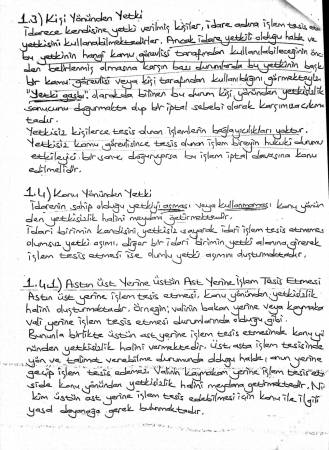 1.3) Kişi Yönünden Yetki
İdarece kendisine yetki verilmiş kişiler, idare adına işlem tesis etme
yetkisini kullanabilmektedirler. Ancak idare yetkili olduğu halde ve
bu yetkinin hangi kamu görevlisi tarafından kullanılabileceğinin önce-
den belirlenmiş olmasına karşın bazı durumlarda bu yetkinin başka
bir kamu görevlisi veya kişi tarafından kullanıldığını görmekteyiz.
"Yetki gasbı" olarak da bilinen bu durum kişi yönünden yetkisizlik
sonucunu doğurmakta olup bir iptal sebebi olarak karşımıza çıkmak-
tadır.
Yetkisiz kişilerce tesis olunan işlemlerin bağlayıcılıkları yoktur.
Yetkisiz kamu görevlisince tesis olunan işlem bireyin hukuki durumunu
etkileyici bir sonuç doğuruyorsa bu işlem iptal davasına konu
edilmelidir.
1.4) Konu Yönünden Yetki
İdarenin sahip olduğu yetkiyi aşması veya kullanmaması konu yönün-
den yetkisizlik halini meydana getirmektedir.
İdari birimin kendisini yetkisiz sayarak idari işlem tesis etmemesi
olumsuz yetki aşımı, diğer bir idari birimin yetki alanına girerek
işlem tesis etmesi ise olumlu yetki aşımını oluşturmaktadır.
1.4.1) Astın Üst Yerine Üstün Ast Yerine İşlem Tesis Etmesi
Astın üst yerine işlem tesis etmesi, konu yönünden yetkisizlik
halini oluşturmaktadır. Örneğin; valinin bakan yerine veya kaymakamın
vali yerine işlem tesis etmesi durumlarında olduğu gibi.
Bununla birlikte üstün ast yerine işlem tesis etmesinde konu yö-
nünden yetkisizlik halini vermektedir. Üst, asta işlem tesisinde
yön ve talimat verebilme durumunda olduğu halde, onun yerine
geçip işlem tesis edemez. Valinin kaymakam yerine işlem tesis et-
mesi de konu yönünden yetkisizlik halini meydana getirmektedir. Ni-
kim üstün ast yerine işlem tesis edebilmesi için konu ile ilgili
yasal dayanağa gerek bulunmaktadır.